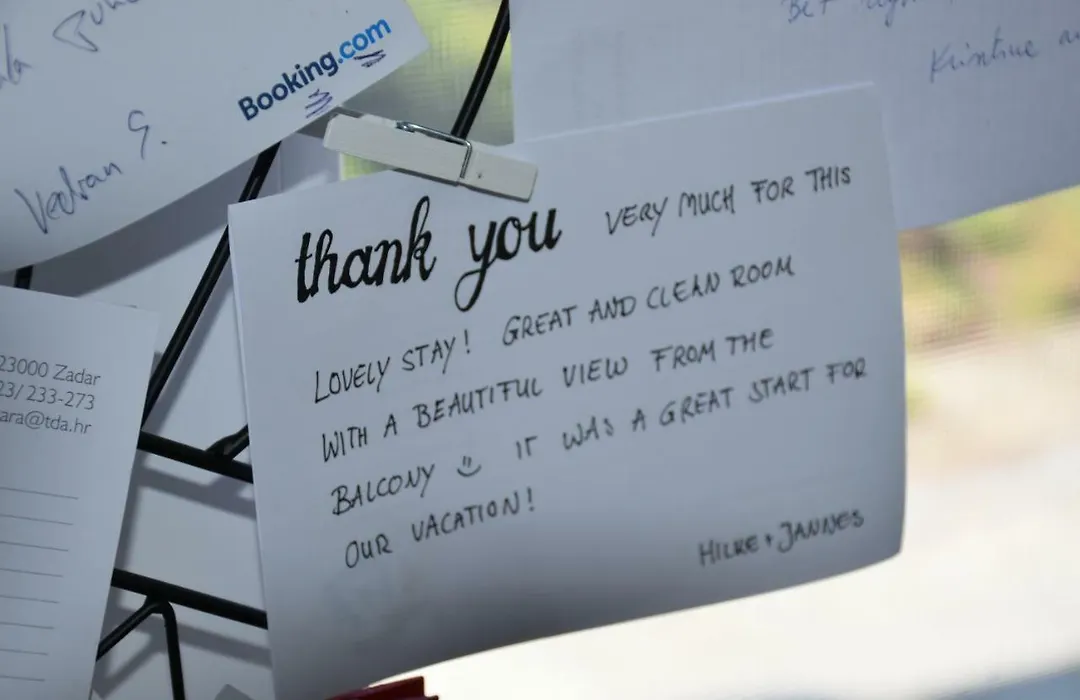 Booking.com
Vedran G.
Kristine
23000 Zadar
23/ 233-273
ara@tda.hr
thank you VERY MUCH FOR THIS
LOVELY STAY! GREAT AND CLEAN ROOM
WITH A BEAUTIFUL VIEW FROM THE
BALCONY ☺ IT WAS A GREAT START FOR
OUR VACATION!
HILKE + JANNES